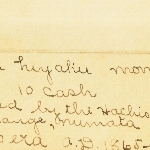 hiyaku mon
10 cash
ed by the Hachis
ange, Numata
era A.D. 1865-